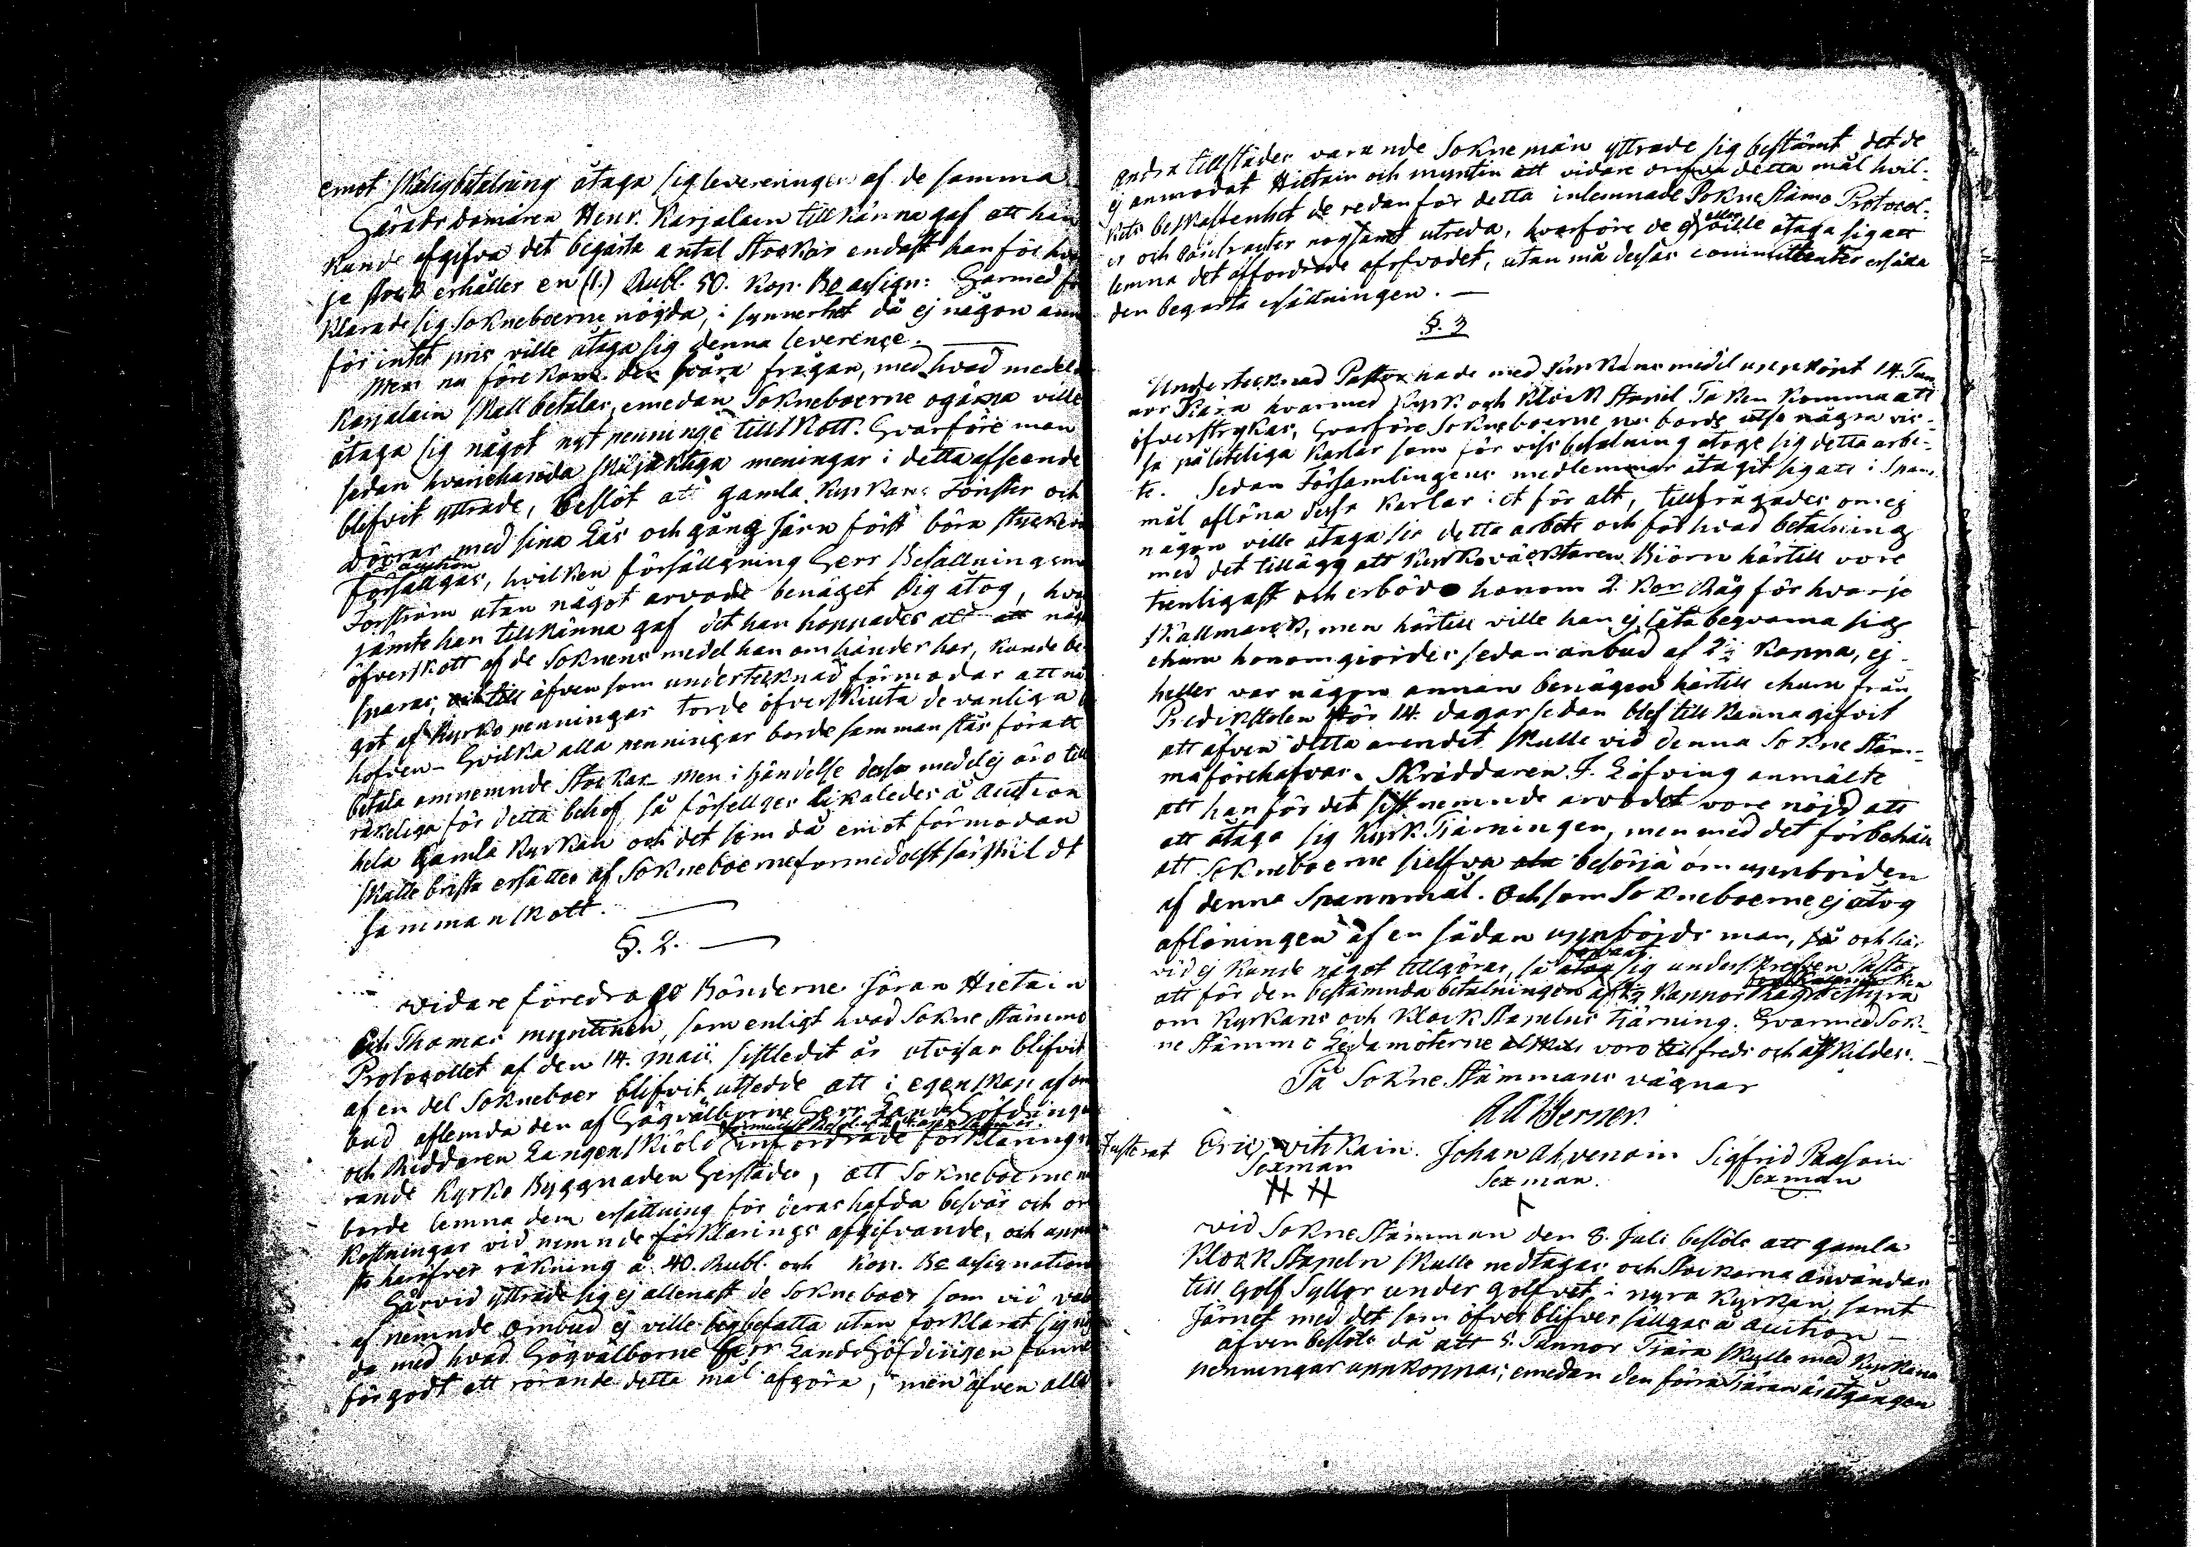 emot skälig betalning åtaga sig levereringen af de samma
Härads Domaren Henr. Karjalain tillkänna gaf att han
kunde afgifva det begärta antal Stockar endast han för hvar
je stock erhåller en (1.) Rubl. 50. Kop. Bo assign: Härmed för
klarade sig Sokneboerne nöjda, i synnerhet då ej någon annan
för intet pris ville åtaga sig denna leverence.
Men nu förekom den svåra frågan, med hvad medel
Karjalain skall betalas, emedan Sokneboerne ogärna ville
åtaga sig något nytt penninge tillskott. Hvarföre man
sedan hvariehanda skiljaktiga meningar i detta afseende
blifvit yttrade, beslöt att gamla kyrkans Fönster och
dörrar med sina Lås och gång järn först böra styckevis
å auction
försälljas, hvilken försälljning Herr Befallningsman
Forström utan något arvode benäget sig åtog, hvar
jämte han tillkänna gaf det han hoppades att något
öfverskott af de Soknens medel han om händer har, kunde be
sparas, äfven som undertecknad förmodar att nå
got af kyrko penningar torde öfverskiuta de vanliga be
hofven - Hvilka alla penningar borde samman slås för att
betala omnemnde Stockar men i händelse dessa medel ej äro till
räkeliga för detta behof så förselljes likaledes å Auction
hela gamla kyrkan och det som då emot förmodan
skulle brista ersättes af Sokneboerne formedelst särskildt
samman skott.
§. 2.
Vidare föredrogo Bönderne Jöran Hietain
och Thomas Myntinen, som enligt hvad Sokne Stämmo
Protocollet af den 14. Maii sistledit år utvisar blifvit
af en del Sokneboer blifvit utsedde att i egenskap af om
bud aflemna den af Högvälborne Herr Landshöfdingen
och Riddaren Langenskiöld infordrade förklaring
rande kyrko Byggnaden Herstädes, att Sokneboerne nu
borde lemna dem ersättning för deras hafda besvär och om
kostningar vid nemnde förklarings afgifvande, och uppvi
ste häröfver räkning à 40. Rubl. och Kop. Bo assignation
Härvid yttrade sig ej allenast de Sokneboer som vid val
af nemnde ombud ej ville sig befatta utan förklarat sig nöj
da med hvad Högvälborne Herr Landshöfdingen funne
för godt att rörande detta mål afgöra, men äfven alla
andra tillstädes varande Soknemän yttrade sig bestämt det de
ej anmodat Hietain och Myntin att vidare om detta mål hvil-
kets beskaffenhet de redan för detta inlemnade Sokne Stämo Protocol-
er och nogsamt utreda, hvarföre de ej eller ville åtaga sig att
lemna det affordrade arfvodet, utan må dessas committenter ersätta
den begärta ersättningen. —
§. 3
Undertecknad Pastor hade med kyrkans medel uppköpt 14. Tun
nor Tiära hvarmed kyrk. och klock Stapel Taken komma att
öfverstrykas, hvarföre Sokneboerne nu borde utse några vis-
sa påliteliga karlar som för viss betalning åtoge sig detta arbe-
te. Sedan Församlingens medlemmar åtagit sig att i Span-
mål aflöna dessa karlar ett för alt, tillfrågades om ej
någon ville åtaga sig detta arbete och för hvad betalning
med det tillägg att kyrkoväktaren Biörn härtill vore
tienligast och erböds honom 2. Kop Råg för hvarje
skallmarck, men härtill ville han ej låta beqvama sig
ehuru honom giordes sedan anbud af 2½ Kappa, ej
heller var någon annan benägen härtill ehuru från
Predikstolen för 14. dagar sedan blef till känna gifvit
att äfven detta ärendet skulle vid denna Sokne Stäm-
ma förehafvas. Skräddaren J. Löfving anmälte
att han för det sist nemnde arvodet vore nöjd att
att åtaga sig kyrk Tiärningen, men med det förbehåll
att Sokneboerne sielfva besörja om uppbörden
af denna Spannmål. Och som Sokneboerne ej åtog
aflöningen af en sådan uppbörds man, och här
vid ej kunde något tillgöras, så åtog sig underskrefven Pastor
att för den bestämnda betalningen af 2½ kappor Råg bestyra
om kyrkans och klock Stapelns Tjärning. Hvarmed Sok-
ne Stämmo Ledamöterne voro tillfreds och åtskildes. —
På Sokne Stämmans vägnar
Ad Perner.
Justerat Eric Vitikain. Johan Ahvenain Sigfrid Paasoin
Sexman Sexman. Sexman
Vid Sokne Stämman den 8. Juli beslöts att gamla
klock Stapeln skulle nedtagas och stockarna användas
till Golf Syllar under golfvet i nyra kyrkan, samt
Järnet med det som öfver blifver sälljas å auction —
äfven beslöts då att 5. Tunnor Tiära skulle med kyrkans
penningar uppkopas, emedan den förra Tiäran är åtgången